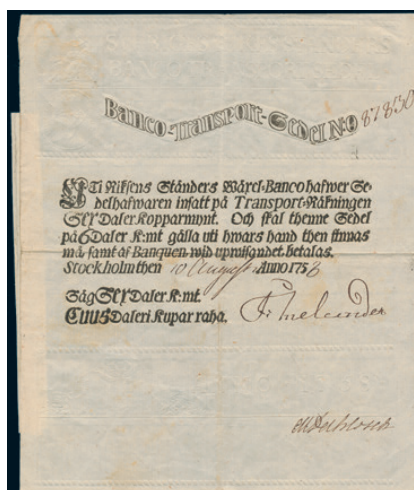 Banco-Transport-Sedel N:o 87830
UTi Riksens Ständers Wäxel-Banco hafwer Se-
delhafwaren insatt på Transport-Räkningen
SEX Daler Kopparmynt. Och skal thenne Sedel
på 6 Daler K:mt gälla uti hwars hand then finnas
må samt af Banquen wid upwisandet betalas.
Stockholm then 10 August: Anno 1756
Säg SEX Daler K:mt.
CUUS Daleri Kupar raha.